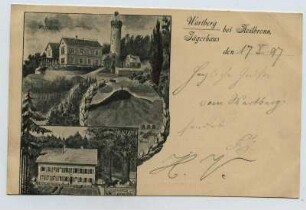 Wartberg
Jägerhaus bei Heilbronn.
den 17 X 97
Herzliche Grüße
vom Wartberg
H. V.